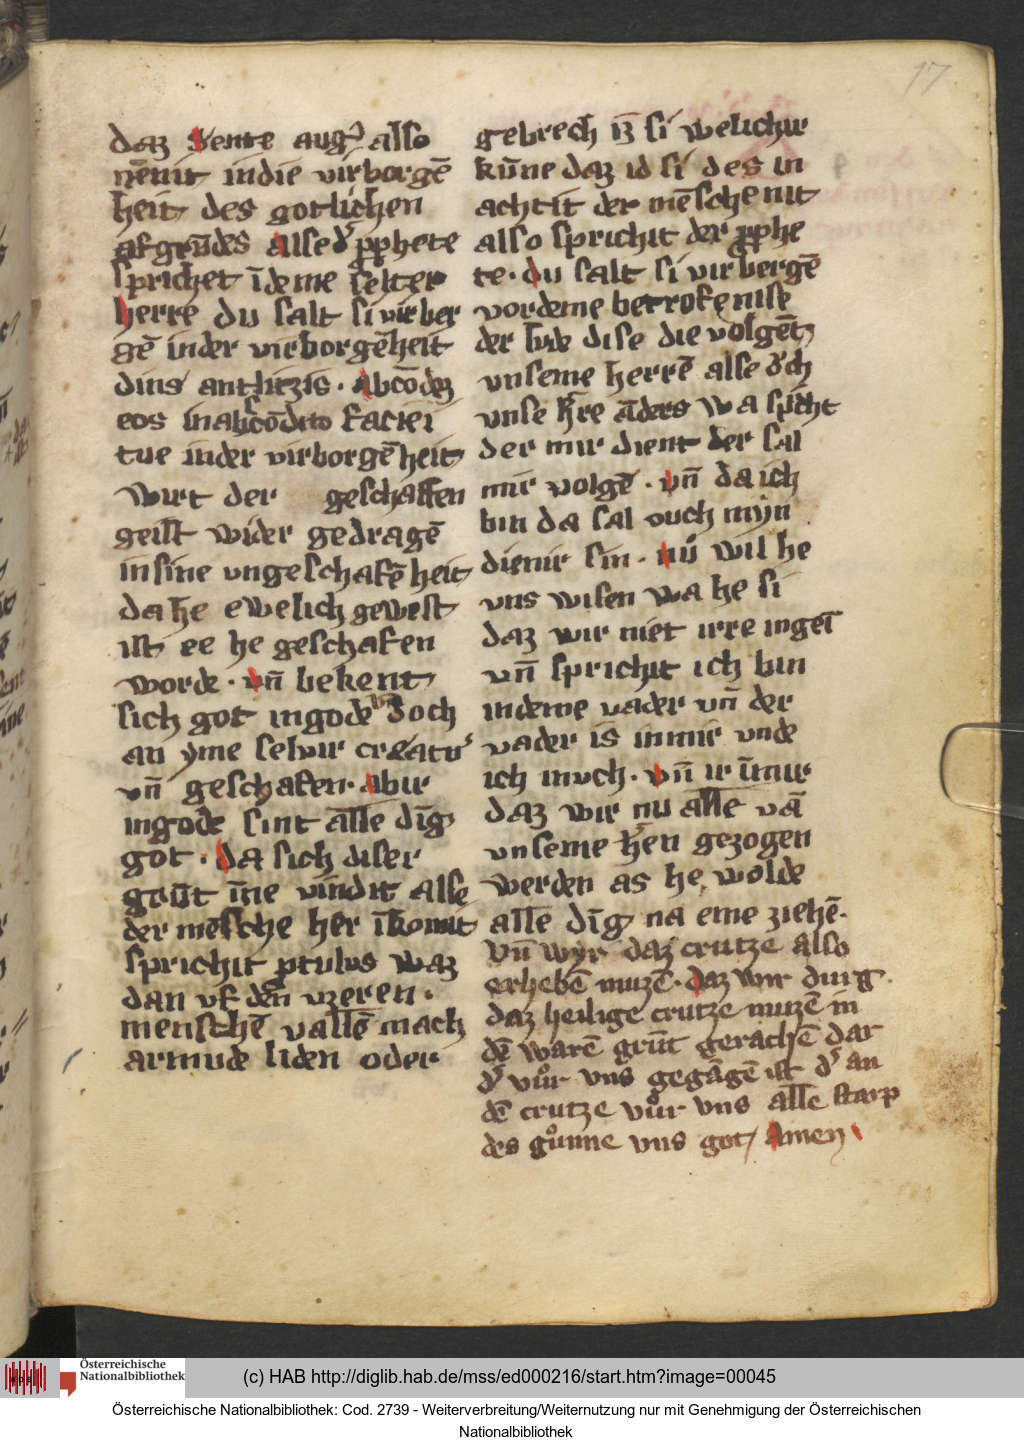 17
daz sente aug᷒ also
nēnit indie virborgē
heit des gotlichen
afgrūdes alse d᷒ ꝓphete
sprichet ī deme selter
herre du salt si virber
gē inder virborgēheit
dins antlitzis · Abcōdez
eos in abscōdito faciei
tue inder virborgēheit
wirt der geschaffen
geist wider gedragē
in sine ungeschafē heit
da he ewelich gewest
ist ee he geschafen
worde · vn̄ bekent
sich got in gode doch
an yme selvir creatu᷒
vn̄ geschafen · abir
in gode sint alle dīg
got · da sich diser
grūt īne vindit alse
der mēsche her ī komit
sprichit ptulus waz
dan uf den uzeren ·
menschē vallē mach
armude liden oder
gebrech iz si welichir
kūne daz id si des in
achtit der mēsche nit
also sprichit der ꝓphe
te · du salt si virbergē
vordeme betrofenise
der lude dise die volgēt
unseme herrē alse och
unse h᷒re āders wa spricht
der mir dient der sal
mir volgē · vn̄ da ich
bin da sal ouch myn
dienir sin · nu wil he
uns wisen wa he si
daz wir niet irre ingēt
vn̄ sprichit ich bin
indeme vader vn̄ der
vader is in mir unde
ich in uch · vn̄ ir ī mir
daz wir nu alle vā
unseme h᷒en gezogen
werden as he wolde
alle dīg na eme ziehē ·
Vn̄ wyr daz crutze also
erhebē muzē · daz wir durg
daz heilige crutze muzē in
dē warē grūt gerachē dar
d᷒ vůr uns gegāgē ist d᷒ an
dē crutze vůr uns alle starp
des gůnne uns got / Amen
Österreichische
Nationalbibliothek
(c) HAB http://diglib.hab.de/mss/ed000216/start.htm?image=00045
Österreichische Nationalbibliothek: Cod. 2739 - Weiterverbreitung/Weiternutzung nur mit Genehmigung der Österreichischen
Nationalbibliothek